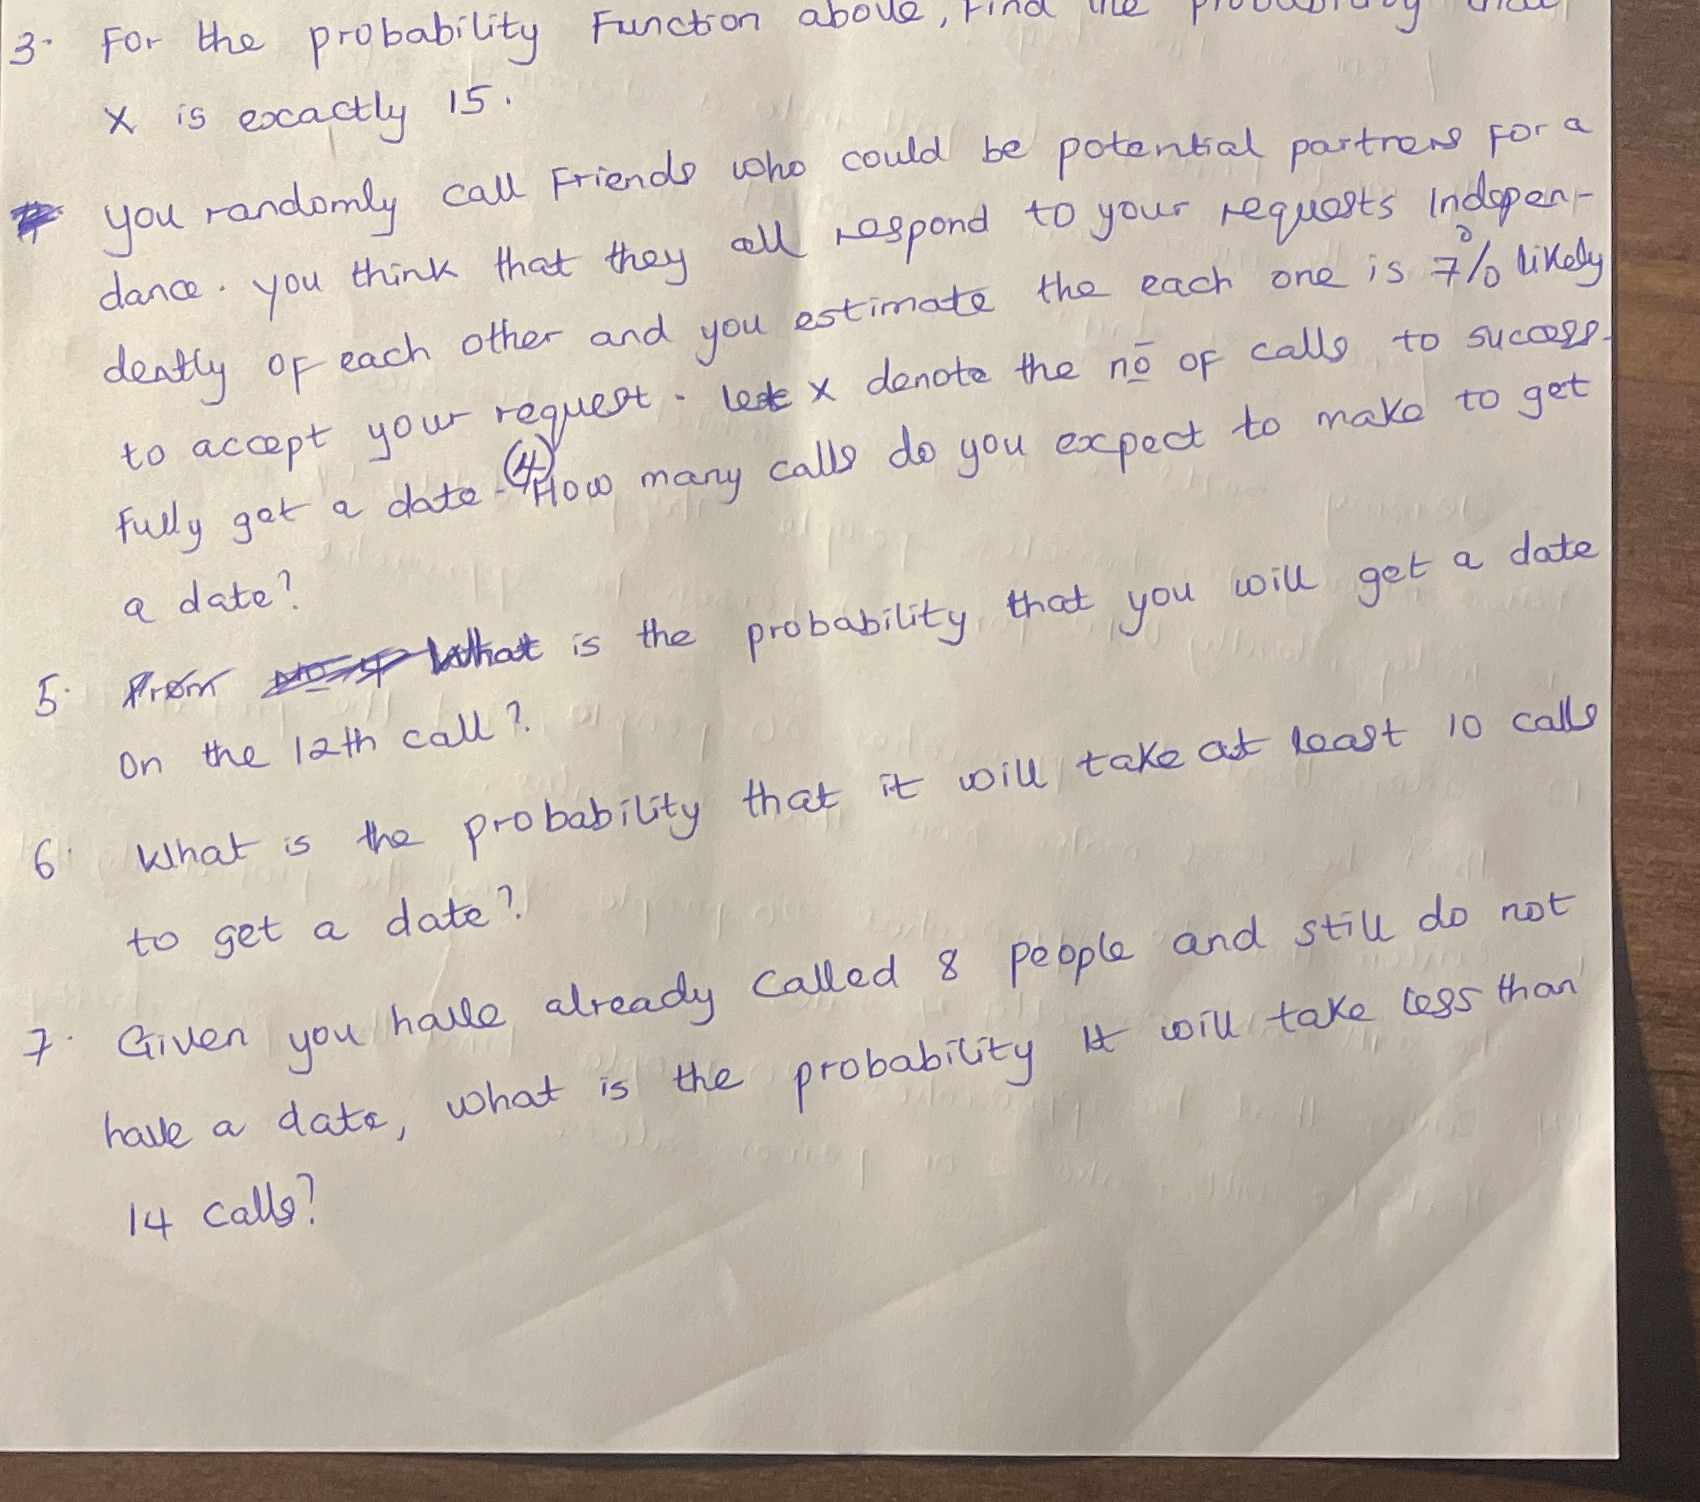 3. For the probability Function above, Find the probability that
X is excactly 15.
you randomly call Friends who could be potential partners For a
dance. you think that they all respond to your requests Indepen-
dently of each other and you estimate the each one is 7% likely
to accept your request. let X denote the no of calls to success-
Fully get a date. (4) How many calls do you expect to make to get
a date?
5. From No 4 What is the probability that you will get a date
On the 12th call?
6. What is the probability that it will take at least 10 calls
to get a date?
7. Given you have already called 8 people and still do not
have a date, what is the probability It will take less than
14 calls?